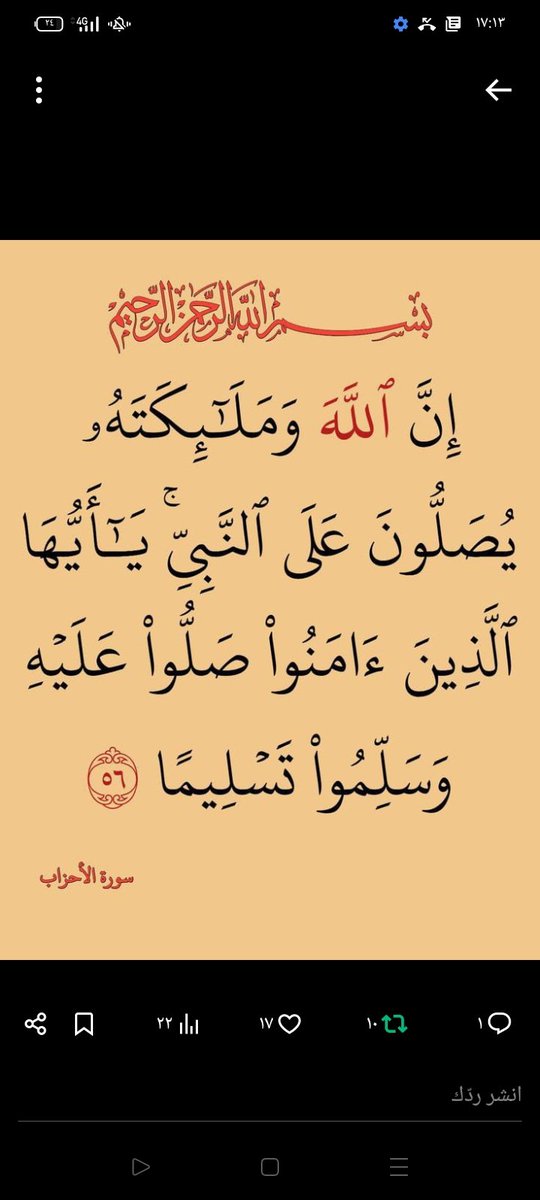 ٢٤ 4G ١٧:١٣
بسم الله الرحمن الرحيم
إِنَّ ٱللَّهَ وَمَلَـٰٓئِكَتَهُۥ
يُصَلُّونَ عَلَى ٱلنَّبِىِّۚ يَـٰٓأَيُّهَا
ٱلَّذِينَ ءَامَنُوا۟ صَلُّوا۟ عَلَيْهِ
وَسَلِّمُوا۟ تَسْلِيمًا ٥٦
سورة الأحزاب
١ ١٠ ١٧ ٢٢
انشر ردّك